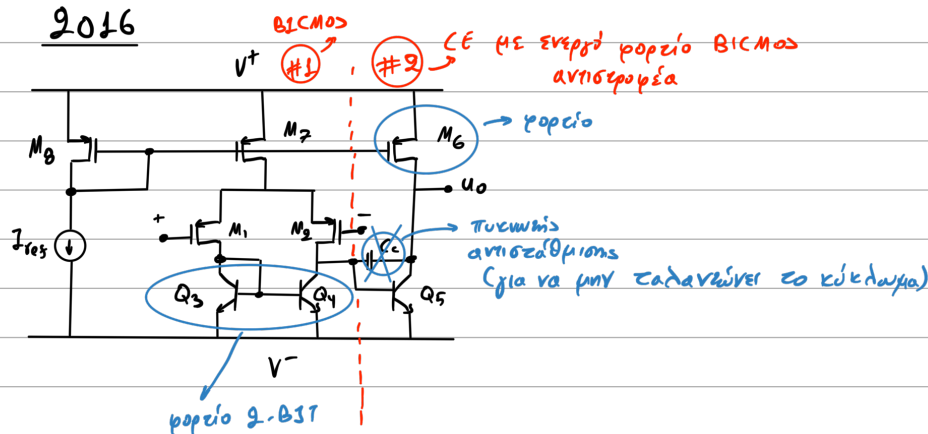 2016
BICMOS
#1
#2
CE με ενεργό φορτίο BICMOS
αντιστροφέα
V+
M8
M7
M6
φορτίο
uo
+
M1
M2
-
Iref
Cc
πυκνωτής
αντιστάθμισης
(για να μην ταλαντώνει το κύκλωμα)
Q3
Q4
Q5
V-
φορτίο 2-BJT